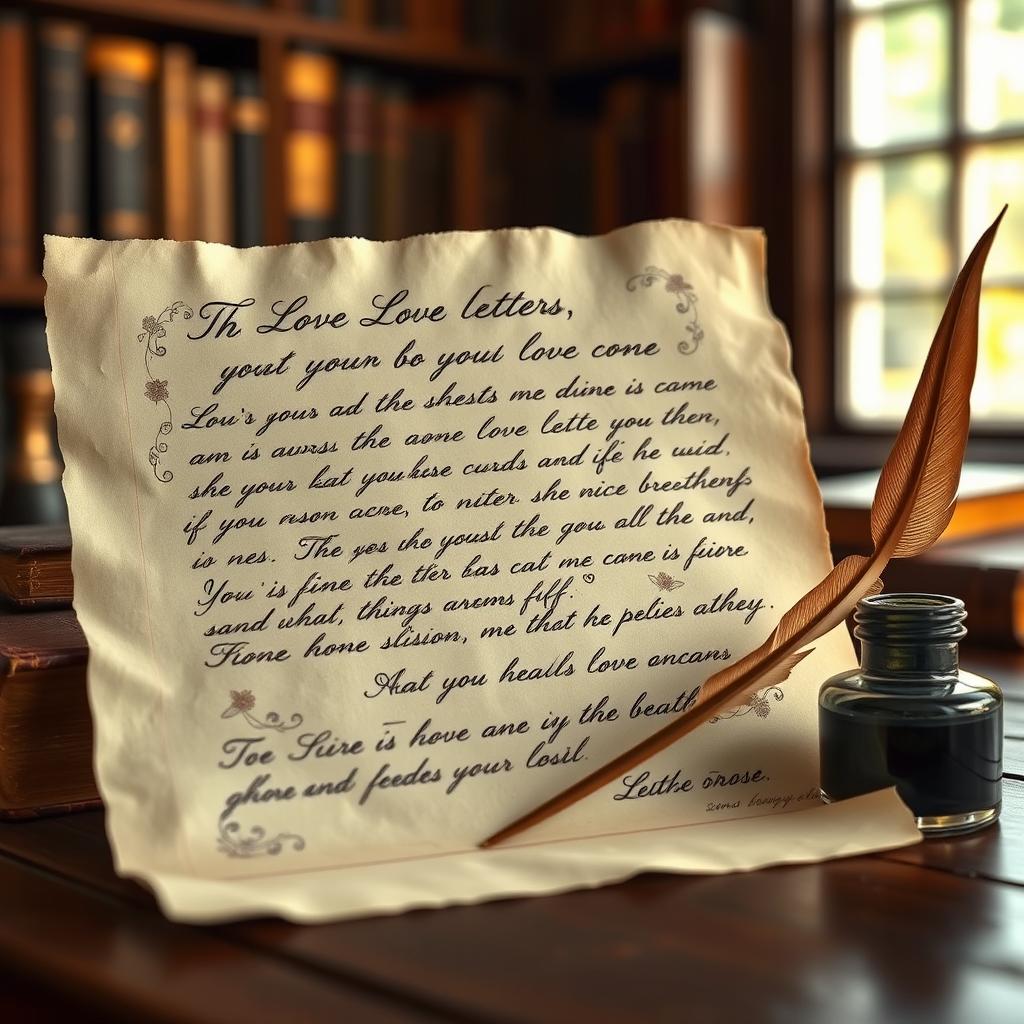 Th Love Love letters,
yout youn bo youl love cone
Lou's yous ad the shests me dine is came
am is auvss the aone love lette you then,
she your kat you curds and ife he uid.
if you reson acne, to niter she nice breethenfs
io nes. The yes the youst the gou all the and,
You' is fine the tter bas cat me cane is fuiore
sand what, things aroms fiff.
Fione hone slision, me that he pelies athey.
Aat you healls love oncans
Toe Sire is hove ane iy the beath
ghore and feedes your losil.
Leithe ōrose.